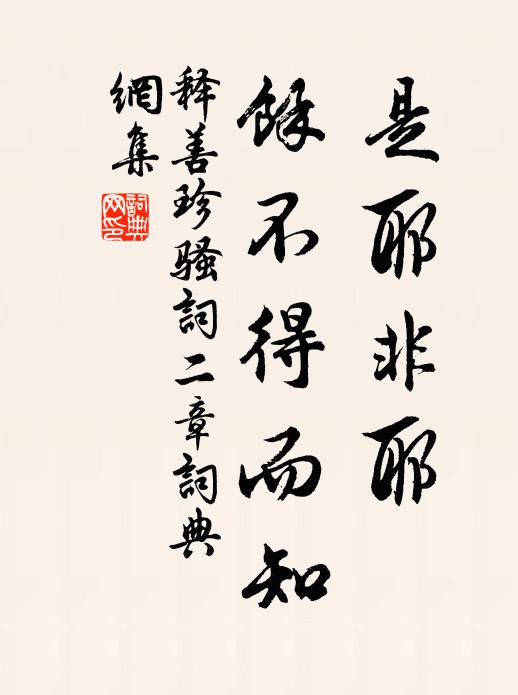 是耶非耶
餘不得而知
释善珍骚詞二章詞典
網集
詞典
网印